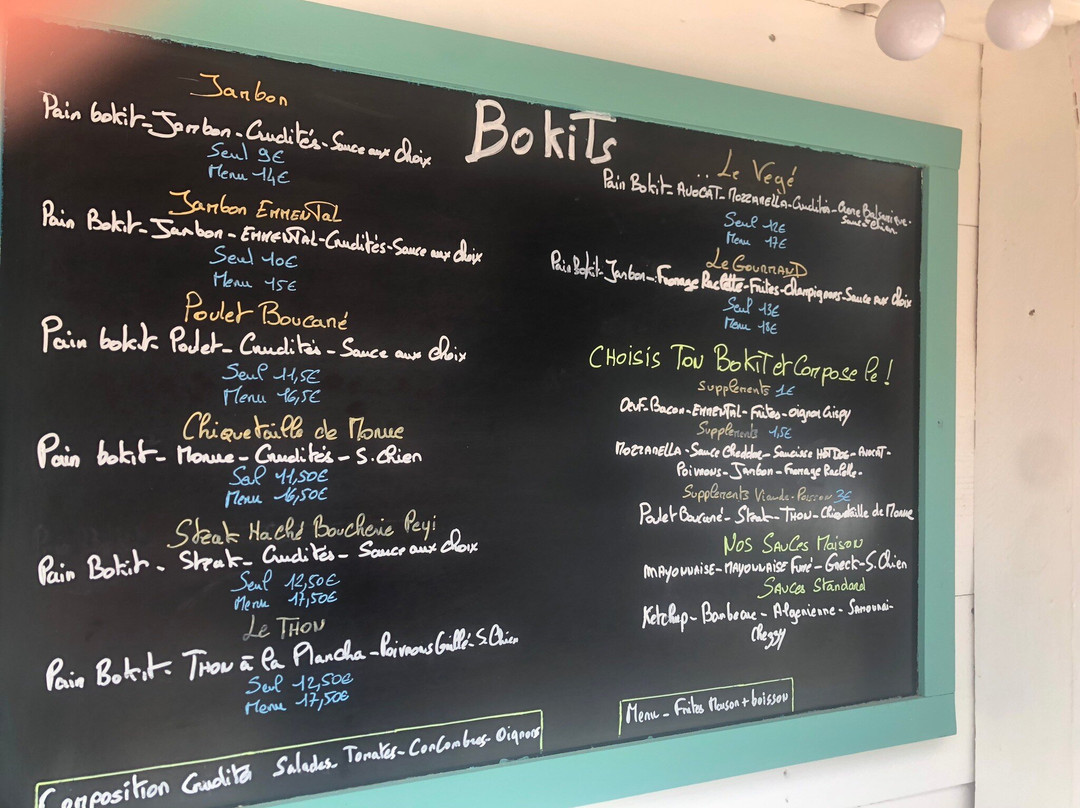 Bokits
Jambon
Pain bokit-Jambon-Crudités-Sauce aux choix
Seul 9€
Menu 14€
Jambon EMMENTAL
Pain Bokit-Jambon-EMMENTAL-Crudités-Sauce aux choix
Seul 10€
Menu 15€
Poulet Boucané
Pain bokit Poulet-Crudités-Sauce aux choix
Seul 11,5€
Menu 16,5€
Chiquetaille de Morue
Pain bokit-Morue-Crudités-S.Chien
Seul 11,50€
Menu 16,50€
Steak Haché Boucherie Peyi
Pain Bokit-Steak-Crudités-Sauce aux choix
Seul 12,50€
Menu 17,50€
Le THON
Pain Bokit-THON à la Plancha-Poivrons Grillé-S.Chien
Seul 12,50€
Menu 17,50€
Composition Crudités Salades-Tomates-Concombres-Oignons
Le Végé
Pain Bokit-AVOCAT-MOZZARELLA-Crudités-Crème Balsamique-
Sauce chien
Seul 12€
Menu 17€
Le GOURMAND
Pain Bokit-Jambon-Fromage Raclette-Frites-Champignons-Sauce aux choix
Seul 13€
Menu 18€
CHOISIS TON BOKIT et Compose le !
Suppléments 1€
Oeuf-Bacon-EMMENTAL-Frites-oignon Crispy
Suppléments 1,5€
MOZZARELLA-Sauce Cheddar-Saucisse HOT DOG-AVOCAT-
Poivrons-Jambon-Fromage Raclette-
Suppléments Viande-Poisson 3€
Poulet Boucané-Steak-THON-Chiquetaille de Morue
NOS SAUCES MAISON
MAYONNAISE-MAYONNAISE Fumé-Greck-S.Chien
SAUCES Standard
Ketchup-Barbecue-Algérienne-Samouraï-
Cheezy
Menu-Frites Maison+boisson